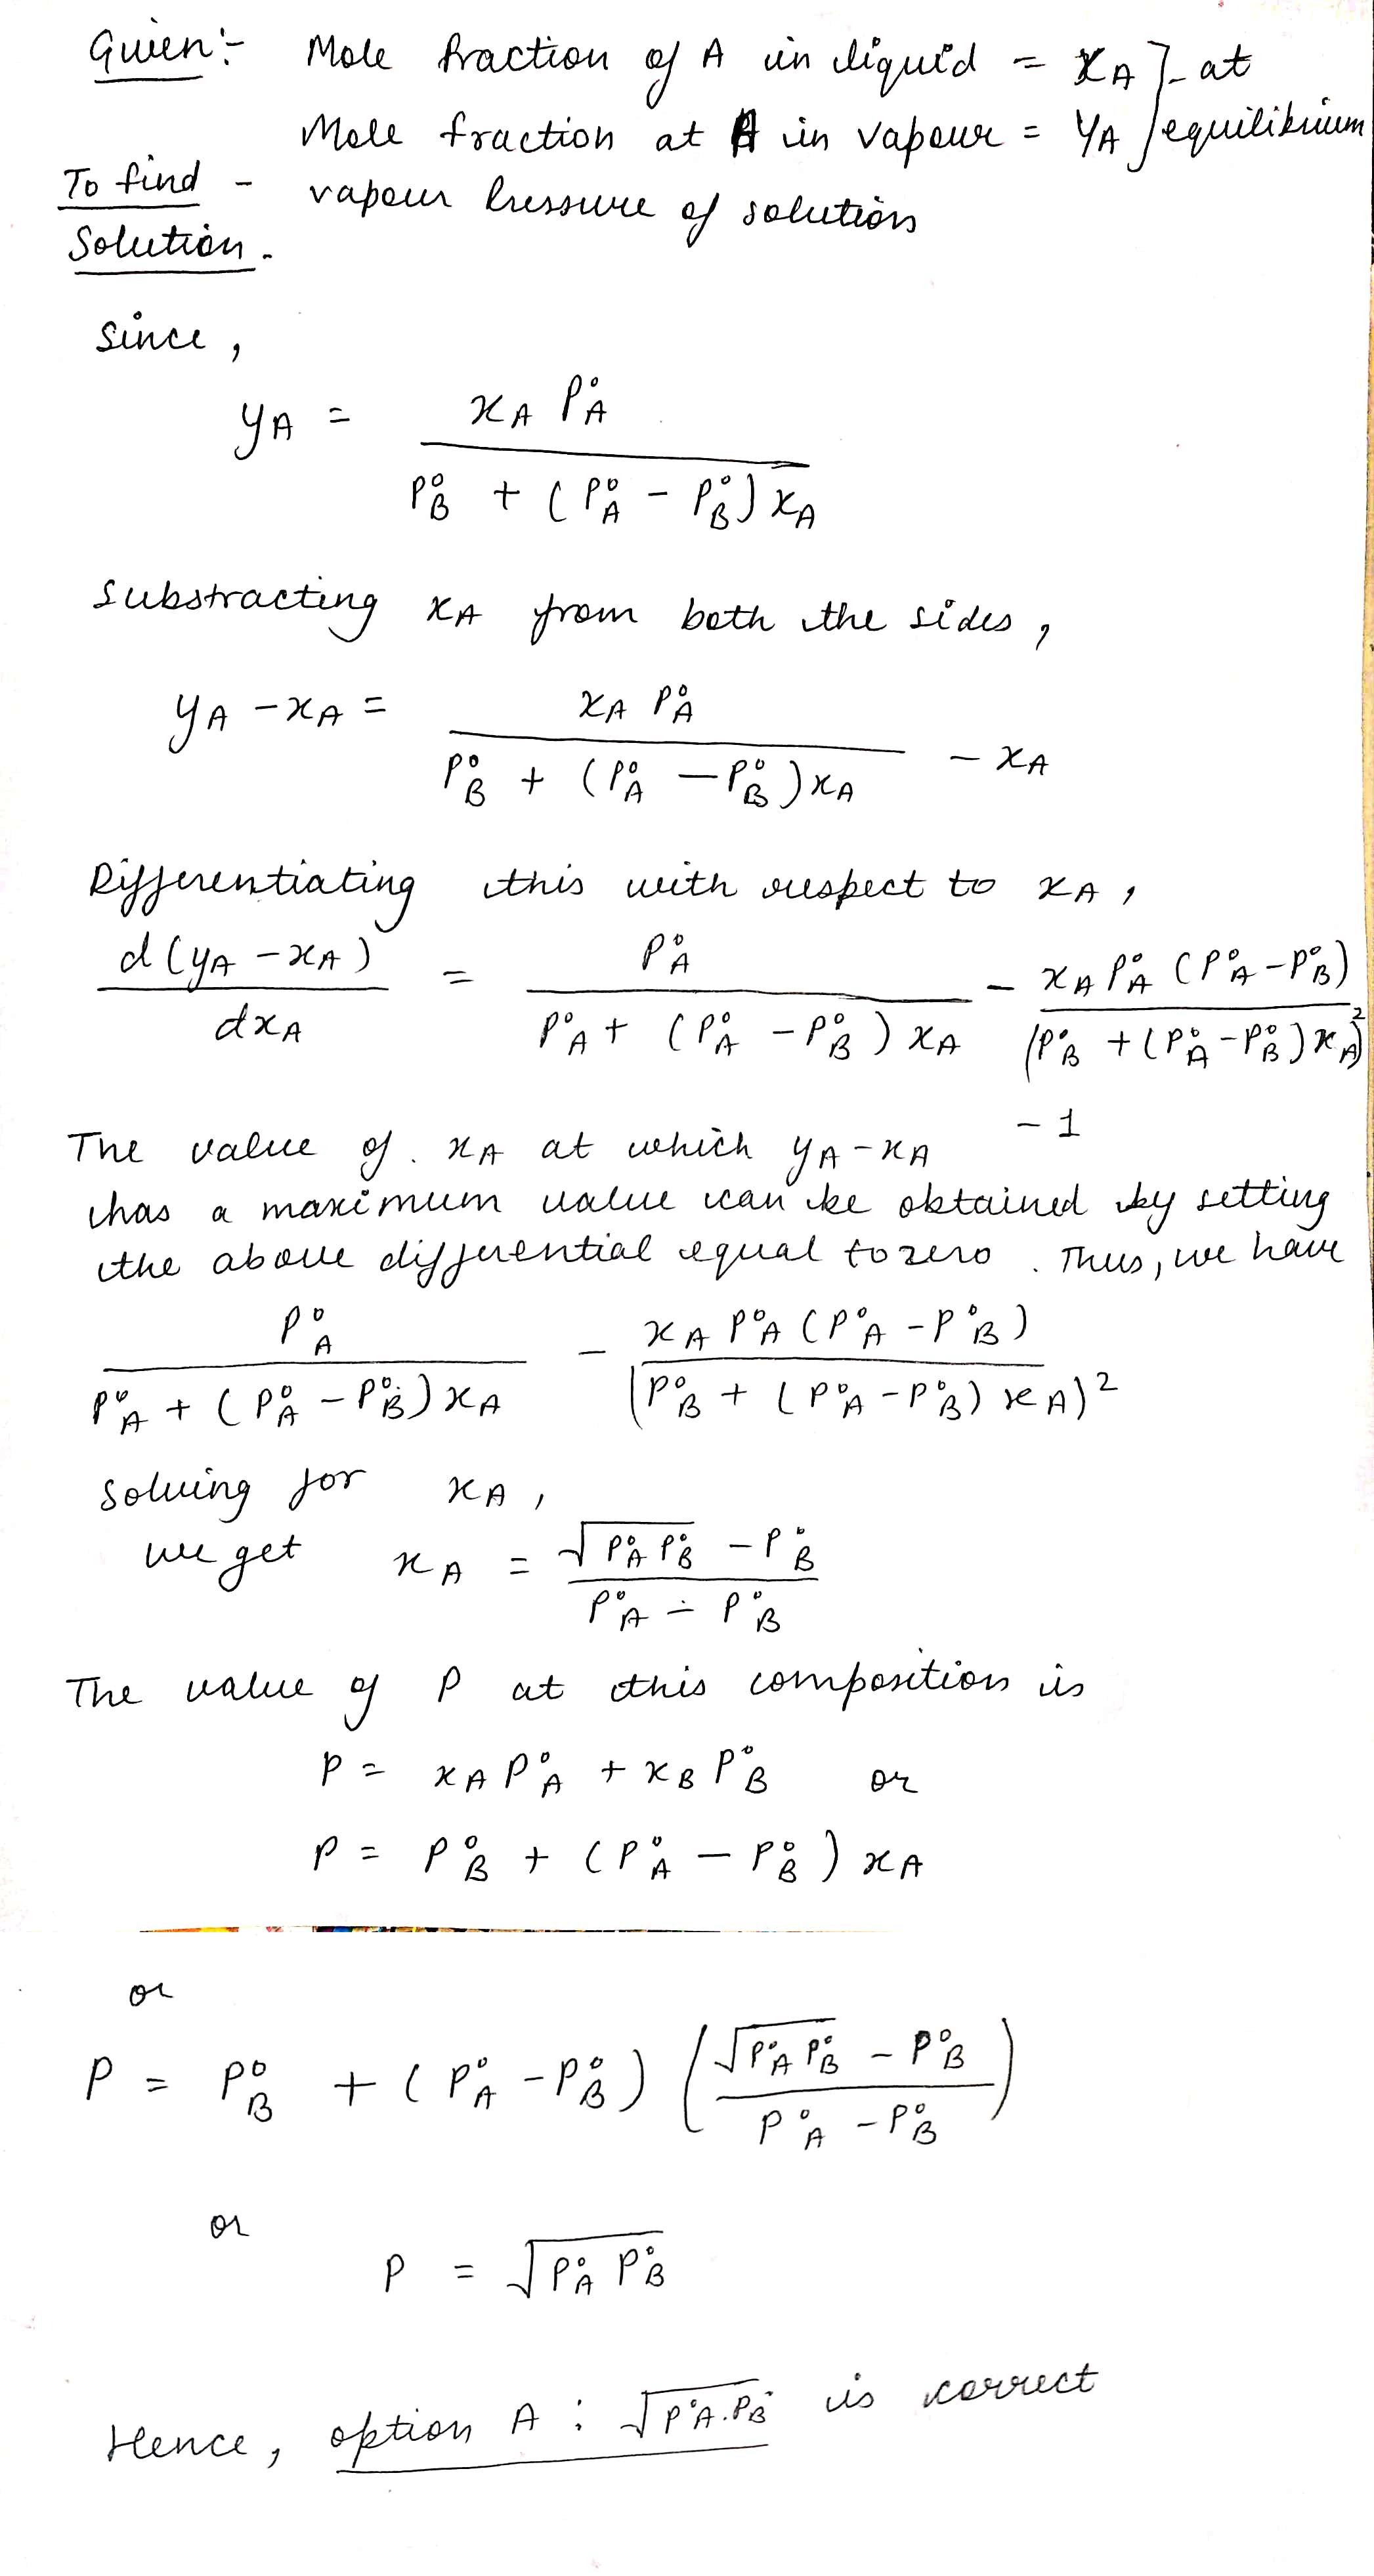 Given:- Mole fraction of A in liquid = xA ] at
Mole fraction at A in vapour = YA ] equilibrium
To find - vapour pressure of solution
Solution.
Since,
yA = xA P°A / P°B + (P°A - P°B) xA
Substracting xA from both the sides,
yA - xA = xA P°A / P°B + (P°A - P°B) xA - xA
Differentiating this with respect to xA,
d(yA - xA) / dxA = P°A / P°A + (P°A - P°B) xA - xA P°A (P°A - P°B) / (P°B + (P°A - P°B) xA)²
- 1
The value of. xA at which yA - xA
has a maximum value can be obtained by setting
the above differential equal to zero. Thus, we have
P°A / P°A + (P°A - P°B) xA - xA P°A (P°A - P°B) / (P°B + (P°A - P°B) xA)²
Solving for xA,
we get xA = √P°A P°B - P°B / P°A - P°B
The value of P at this composition is
P = xA P°A + xB P°B or
P = P°B + (P°A - P°B) xA
or
P = P°B + (P°A - P°B) (√P°A P°B - P°B / P°A - P°B)
or
P = √P°A P°B
Hence, option A : √P°A.P°B is correct